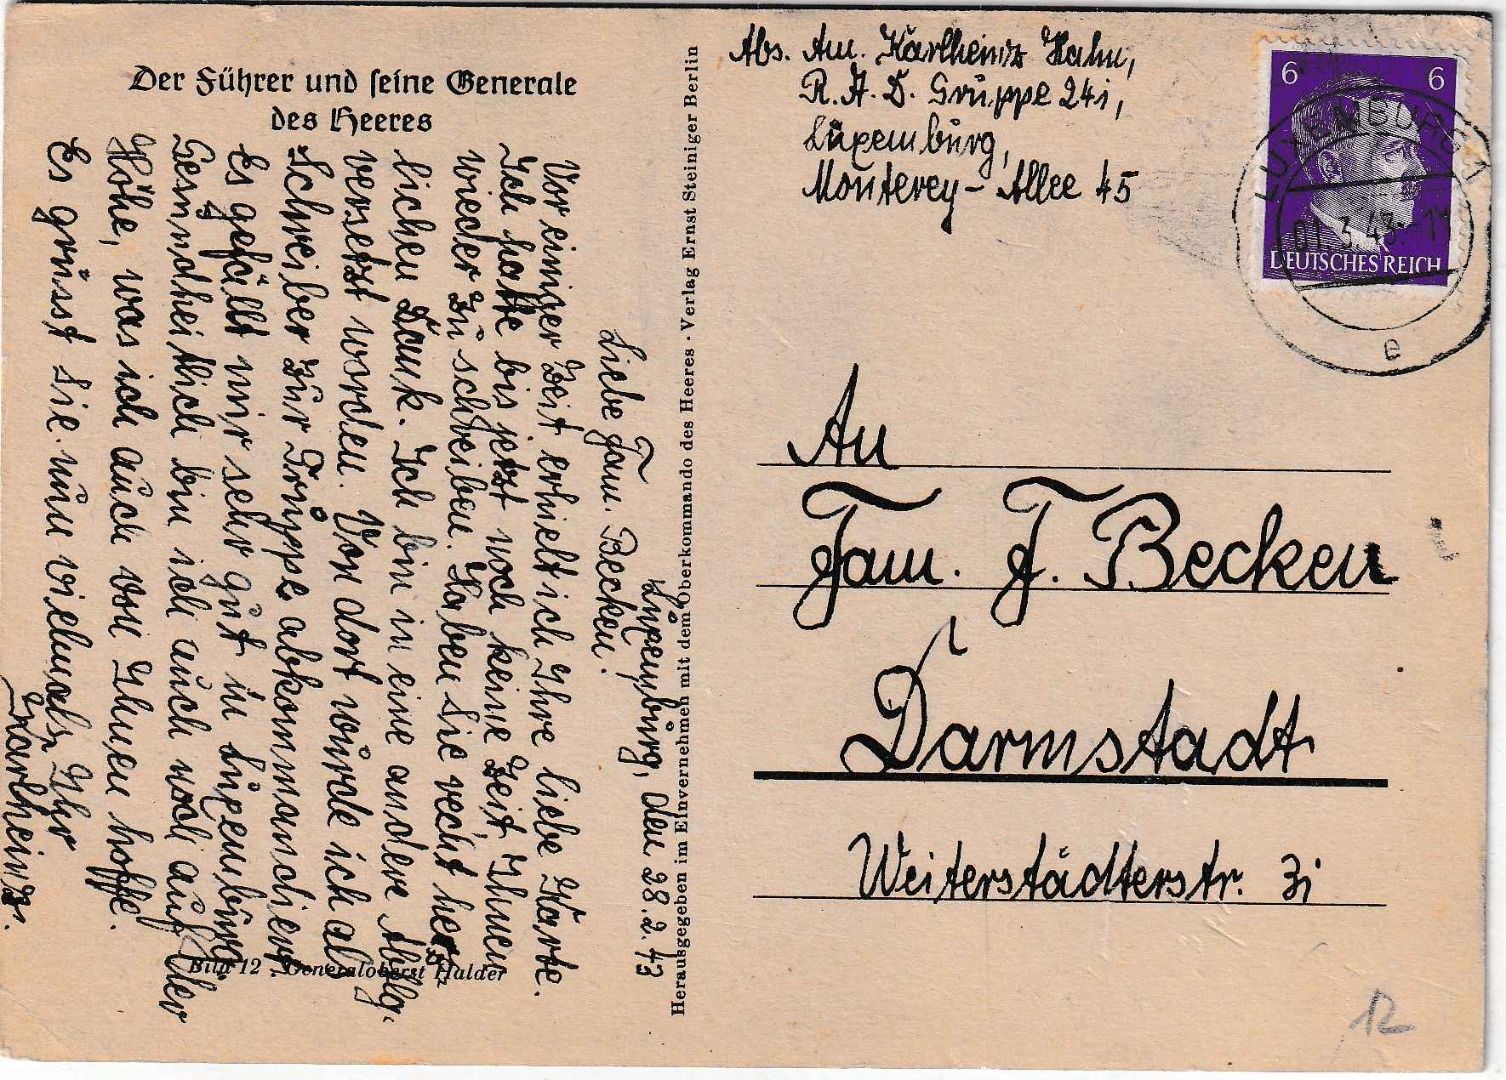 Der Führer und seine Generale
des Heeres
Luxemburg, den 28.2.43
Liebe Fam. Becken!
Vor einiger Zeit erhielt ich Ihre liebe Karte.
Ich hatte bis jetzt noch keine Zeit Ihnen
wieder zu schreiben. Haben Sie recht herz
lichen Dank. Ich bin in eine andere Abtlg.
versetzt worden. Von dort wurde ich als
Schreiber zur Gruppe abkommandiert.
Es gefällt mir sehr gut in Luxemburg.
Gesundheitlich bin ich auch noch auf der
Höhe, was ich auch von Ihnen hoffe.
Es grüsst Sie nun vielmals Ihr
Karlheinz.
Bild 12: Generaloberst Halder
Herausgegeben im Einvernehmen mit dem Oberkommando des Heeres · Verlag Ernst Steiniger Berlin
Abs. Am. Karlheinz Hahn,
R.A.D. Gruppe 241,
Luxemburg,
Monterey-Allee 45
6 6
DEUTSCHES REICH
LUXEMBURG 1
01.3.43.-11
e
An
Fam. F. Becken
Darmstadt
Weiterstädterstr. 31
12